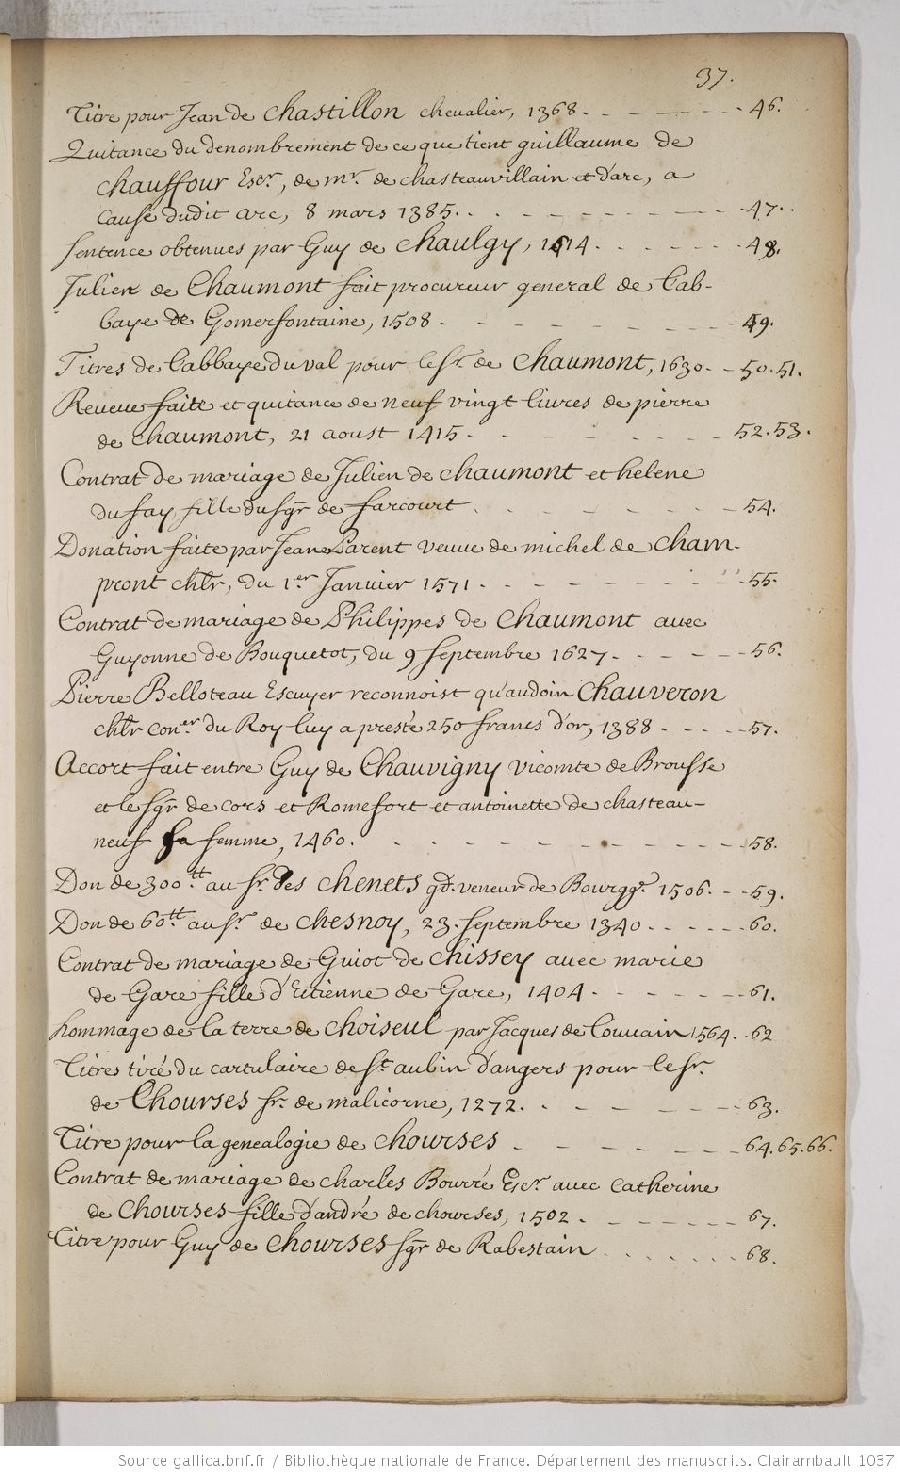 37.
Titre pour Jean de Chastillon chevalier, 1368 - - - - - - - - 46.
Quitance du denombrement de ce que tient guillaume de
Chauffour Escr, de mr. de chasteauvillain et d'arc, a
cause dudit arc, 8 mars 1385. - - - - - - - - 47.
Sentence obtenues par Guy de Chaulgy, 1414 - - - - - - 48.
Julien de Chaumont fait procureur general de l'ab-
baye de Gomerfontaine, 1508 - - - - - - - - 49.
Titres de l'abbaye du val pour le Sr. de Chaumont, 1630 - - 50.51.
Reveue faite et quitance de neuf vingt livres de pierre
de Chaumont, 21 aoust 1415 - - - - - - - 52.53.
Contrat de mariage de Julien de Chaumont et helene
du fay fille du sgr de farcourt - - - - - - - 54.
Donation faite par Jeane Parent veuve de michel de Cham-
pront chlr, du 1er Janvier 1571 - - - - - - - - 55.
Contrat de mariage de Philippes de Chaumont avec
Guyonne de Bouquetot, du 9 septembre 1627 - - - - - 56.
Pierre Belloteau Escuyer reconnoist qu'audoin Chauveron
chlr coner du Roy luy a presté 250 francs d'or, 1388 - - - - 57.
Accort fait entre Guy de Chauvigny vicomte de Brousse
et le sgr de cors et Romefort et antoinette de chasteau-
neuf sa femme, 1460. - - - - - - - - - 58.
Don de 300tt. au Sr. des Chenets gd. veneur de Bourgge. 1506 - - 59.
Don de 60tt au Sr. de Chesnoy, 23. septembre 1340 - - - - - 60.
Contrat de mariage de Guiot de Chissey avec marie
de Gare fille d'Etienne de Gare, 1404 - - - - - - 61.
hommage de la terre de Choiseul par Jacques de Louvain 1564. - 62
Titres tiré du cartulaire de St aubin d'angers pour le Sr.
de Chourses Sr. de malicorne, 1272. - - - - - - 63.
Titre pour la genealogie de Chourses - - - - - - - 64.65.66.
Contrat de mariage de Charles Bourré Escr avec Catherine
de Chourses fille d'andré de chourses, 1502 - - - - - - 67.
Titre pour Guy de Chourses sgr de Rabestain - - - - - - 68.
Source gallica.bnf.fr / Bibliothèque nationale de France. Département des manuscrits. Clairambault 1037